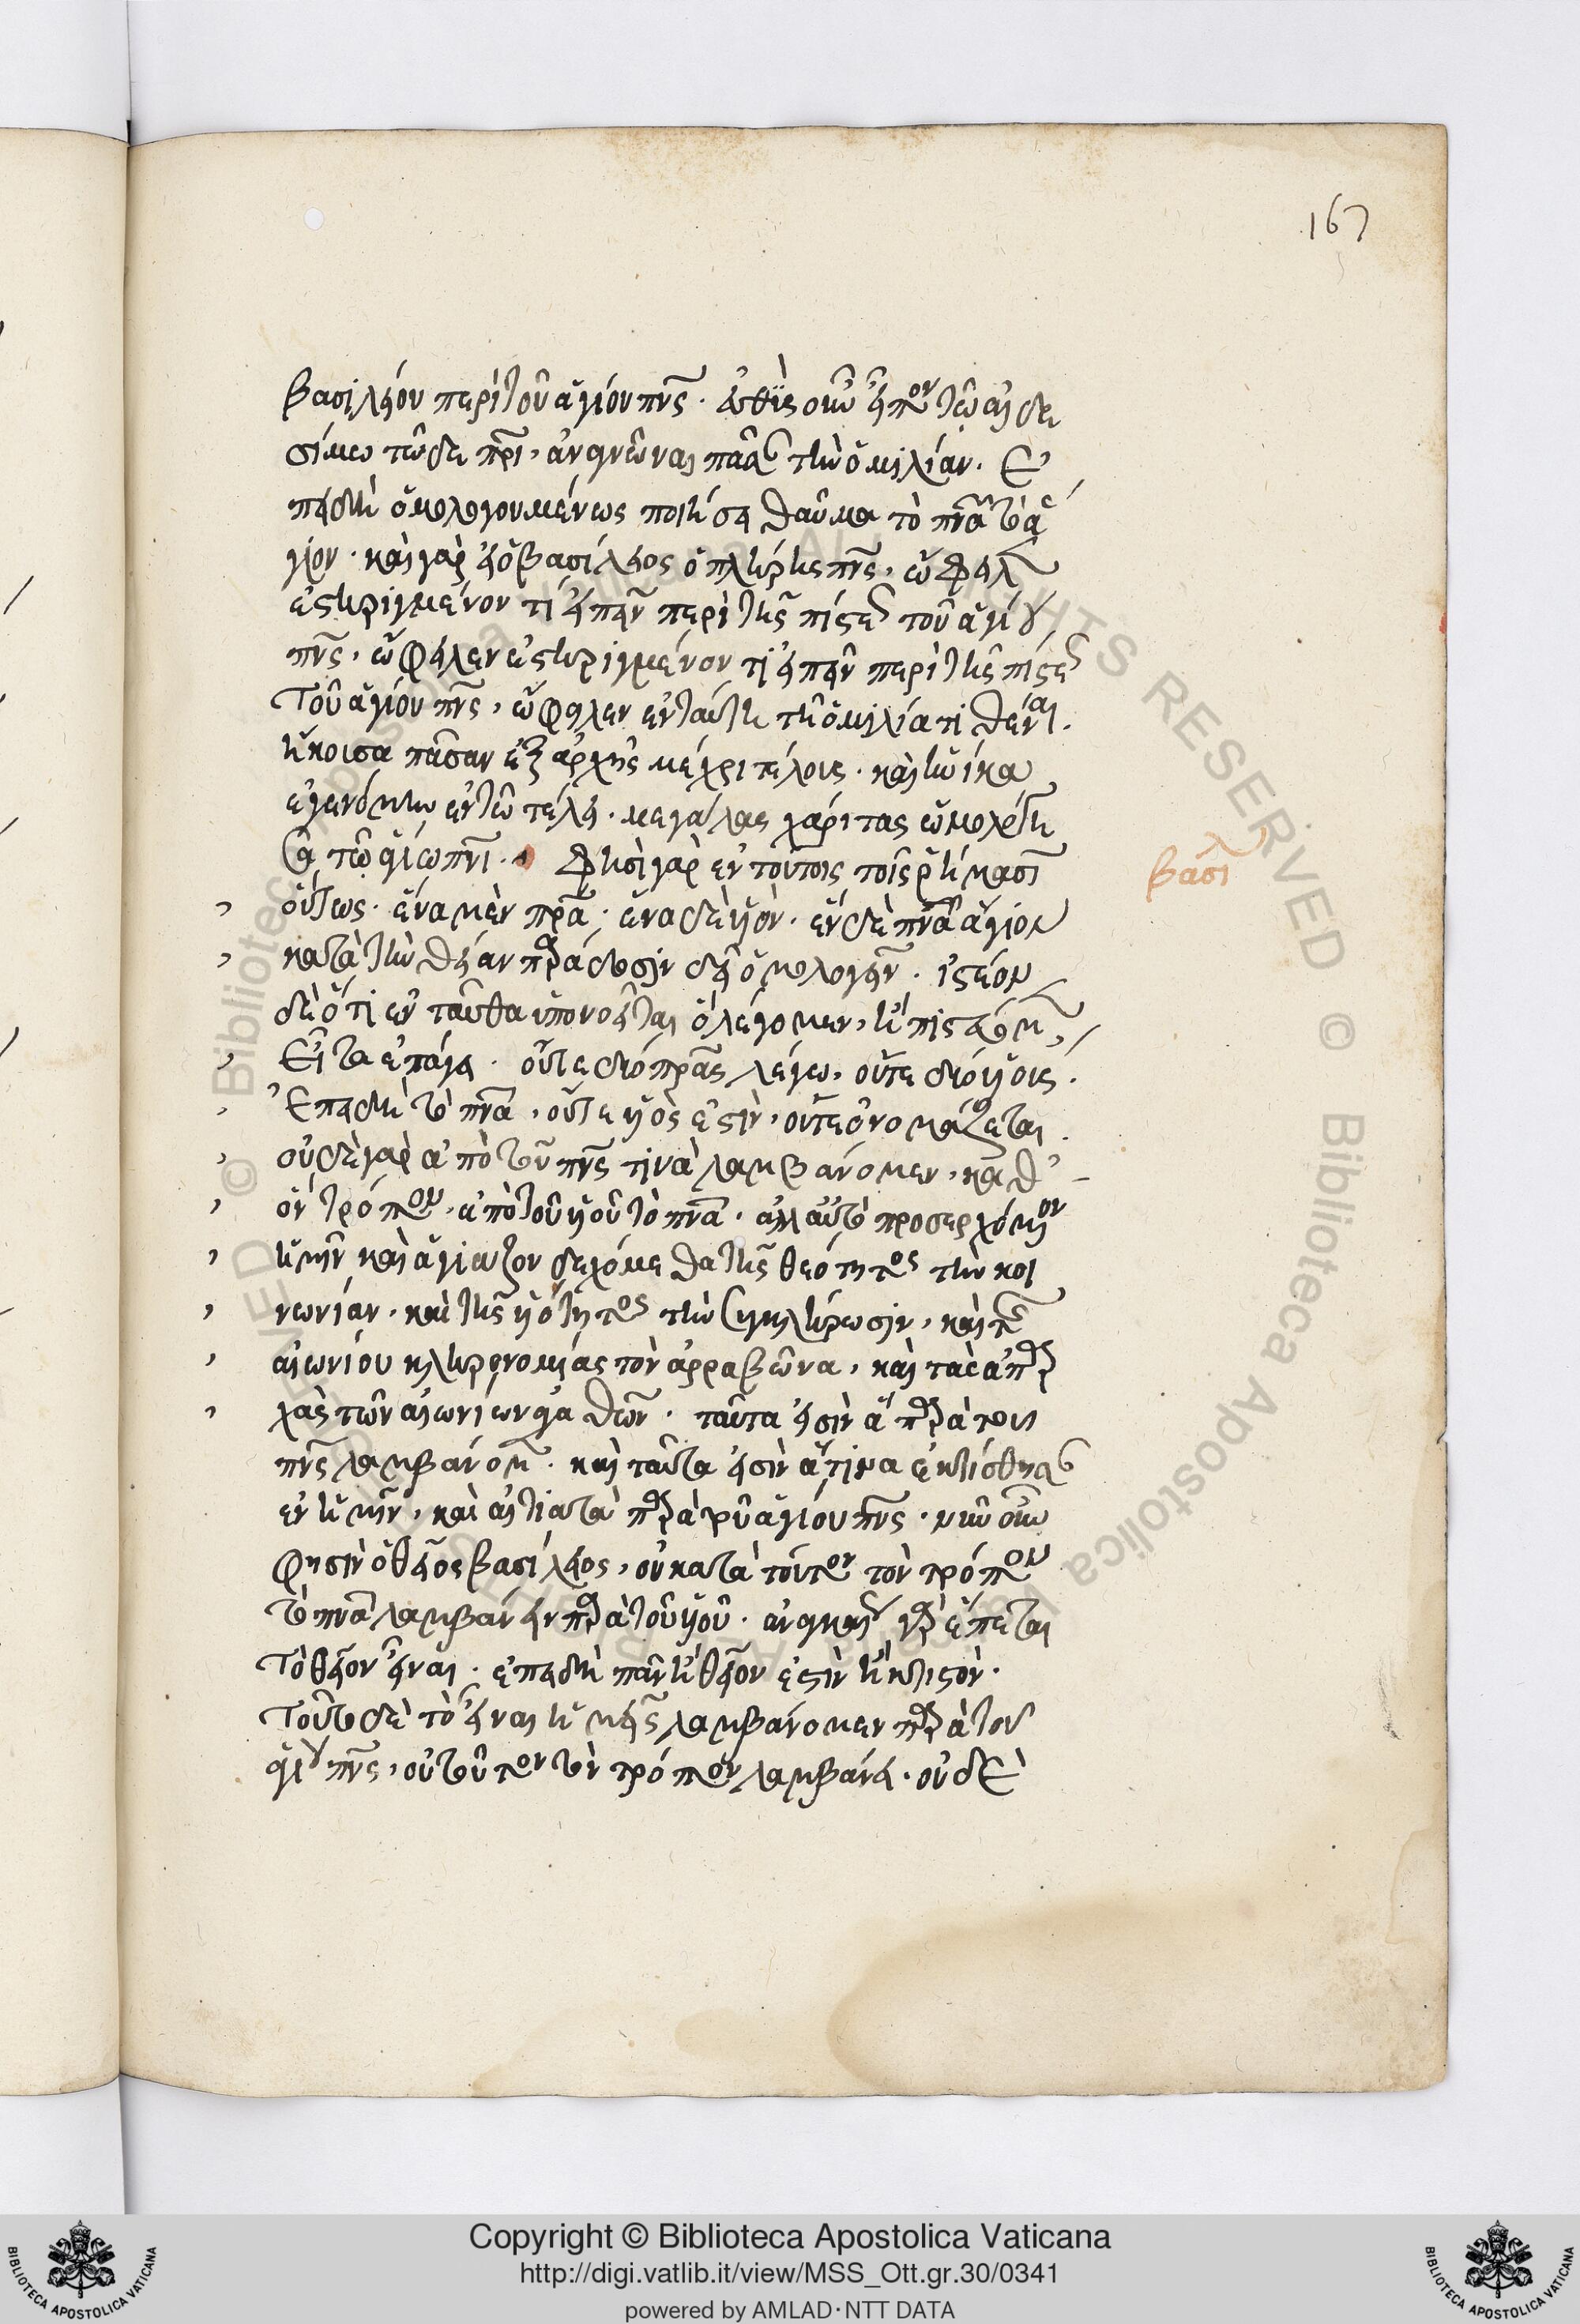 167
βασιλείου περὶ τοῦ ἁγίου πν̅ς. εὐθὺς οὖν εἶπον τῶ αἰδε
σίμω τῶδε πρ̅ι, ἀναγνῶναι πᾶσαν τὴν ὁμιλίαν. Ἐ
πειδὴ ὁμολογουμένως ποιήσει θαῦμα τὸ πν̅α τὸ ἅ
γιον. καὶ γὰρ εἰ ὁ βασίλειος ὁ πλήρης πν̅ς, ὤφειλεν
ἐστηριγμένον τί εἰπεῖν περὶ τῆς πίστεως τοῦ ἁγίου
πν̅ς, ὤφειλεν ἐστηριγμένον τί εἰπεῖν περὶ τῆς πίστεως
τοῦ ἁγίου πν̅ς, ὤφειλεν ἐν ταύτη τῆ ὁμιλία τιθέναι.
ἤκουσα πᾶσαν ἐξ ἀρχῆς μέχρι τέλους. καὶ ἡνίκα
ἐγενόμην ἐν τῶ τέλει. μεγάλας χάριτας ὡμολόγη
σα τῶ ἁγίω πν̅ι. Φησὶ γὰρ ἐν τούτοις τοῖς ῥήμασιν
βασιλ
οὕτως. ἕνα μὲν πρ̅α. ἕνα δὲ υἱὸν. ἓν δὲ πν̅α ἅγιον
κατὰ τὴν θείαν παράδοσιν δεῖ ὁμολογεῖν. ἰστέον
δὲ ὅτι ἐνταῦθα ὑπονοεῖται ὃ λέγομεν, ἢ πιστεύομεν,
Εἶτα ἐπάγει. οὔτε δύο πρ̅ας λέγω, οὔτε δύο υἱούς.
Ἐπειδὴ τὸ πν̅α, οὔτε υἱὸς ἐστὶν, οὔτε ὀνομάζεται.
οὐδὲ γὰρ ἀπὸ τοῦ πν̅ς τινὰ λαμβάνομεν, καθ
ὃν τρόπον, ἀπὸ τοῦ υἱοῦ τὸ πν̅α. ἀλλ αὐτὸ προσερχόμενον
ἡμῖν καὶ ἁγιάζον δεχόμεθα τῆς θεότητος τὴν κοι
νωνίαν. καὶ τῆς υἱότητος τὴν συγκλήρωσιν, καὶ τῆς
αἰωνίου κληρονομίας τὸν ἀρραβῶνα, καὶ τὰς ἀπαρ
χὰς τῶν αἰωνίων ἀγαθῶν. ταῦτα εἰσὶν ἃ παρὰ του
πν̅ς λαμβάνομεν. καὶ ταῦτα εἰσὶν ἅτινα ἐκτίσθησαν
ἐν ἡμῖν, καὶ αἰτιατὰ παρὰ τοῦ ἁγίου πν̅ς. νῦν οὖν
φησὶν ὁ θεῖος βασίλειος, οὐ κατὰ τοῦτον τὸν τρόπον
τὸ πν̅α λαμβάνειν παρὰ τοῦ υἱοῦ. ἀναγκαῖον γὰρ ἕπεται
τὸ θεῖον εἶναι. ἐπειδὴ πᾶν ἢ θεῖον ἐστὶν ἢ κτιστὸν.
τοῦτο δὲ τὸ εἶναι ἡμεῖς λαμβάνομεν παρὰ τοῦ
ἁγίου πν̅ς, οὐ τοῦτον τὸν τρόπον λαμβάνει. οὐδὲ
Copyright © Biblioteca Apostolica Vaticana
http://digi.vatlib.it/view/MSS_Ott.gr.30/0341
powered by AMLAD·NTT DATA